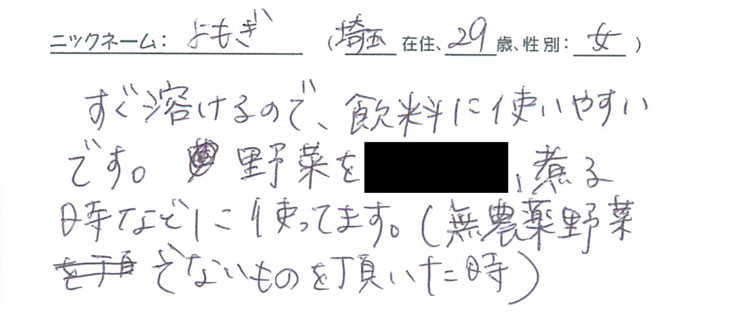 ニックネーム： よもぎ （埼玉 在住、29 歳、性別： 女 ）
すぐ溶けるので、飲料に使いやすい
です。 野菜を 、煮る
時などに使ってます。(無農薬野菜
でないものを頂いた時)